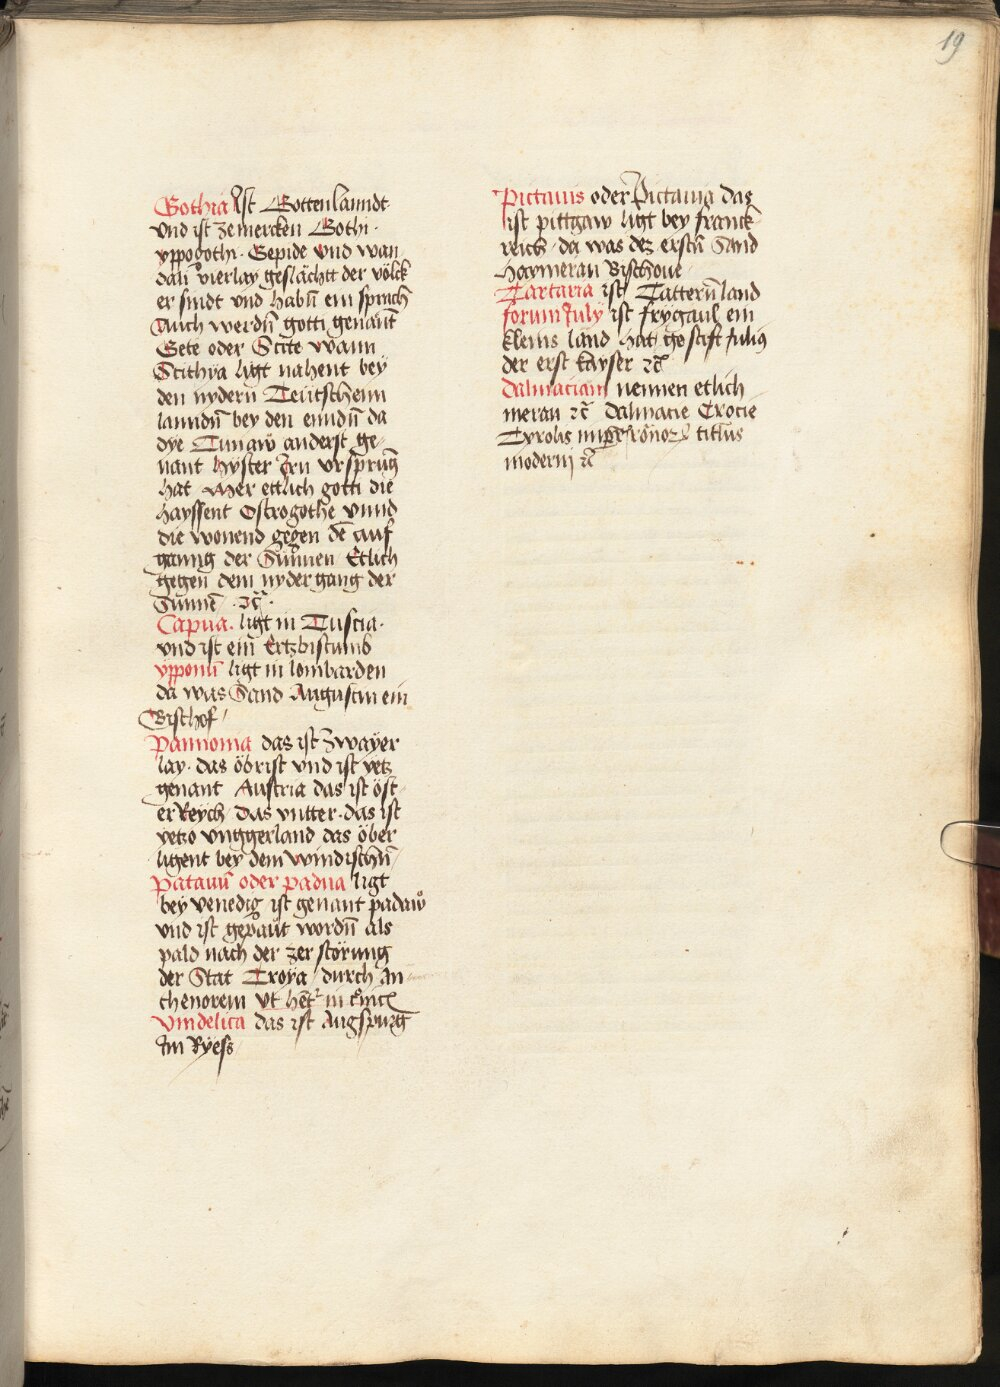 19
Gothia Ist Gottenlanndt
vnd ist zemercken Gothi ·
yppogothi · Gepide vnd wan
dali vierlay geslächtt der völck
er sindt vnd habñ ein sprach
Auch werdñ gotti genãnt
Gete oder Scite wann
Scithya ligt nahent bey
den nydern Teütschenn
lanndñ bey den enndñ da
dye Tunaw anderst ge-
nant hyster Irn vrsprũg
hat Mer ettlich gotti die
hayssent Ostrogothe vnnd
die wonend gegen dē auf
ganng der Sunnen Etlich
gegen dem nyder gang der
Sunnē · ⁊c̃ ·
Capua · ligt in Tuscia ·
vnd ist ein Ertzbistumb
ypponũ ligt in lombarden
da was Sand Augustin ein
Bischof /
Pannonia das ist Zwayer
lay · das öbrist vnd ist yetz
genant Austria das ist öst-
er Reych das vntter · das ist
yetzo vnggerland das öber
ligent bey dem windischñ /
Patauũ oder padua ligt
bey venedig ist genant padaw
vnd ist gepaut wordñ als
pald nach der zerstörung
der Stat Troya / durch An-
thenorem vt het᷑ in
Vindelica das ist Augspurg
Im Ryess
Pictauis oder Pictauia das
ist pittgaw ligt bey franck
reich · da was dez erstñ Sand
Haymeran Bischoue
Tartaria ist Tatterñland
forum July ist frygaul ein
kleins land hat gestift Julius
der erst kayser ⁊c̃
Dalmaciam nennen etlich
meran ⁊c̃ dalmacie Crocie
Tyrolis titlus
moderni ⁊c̃